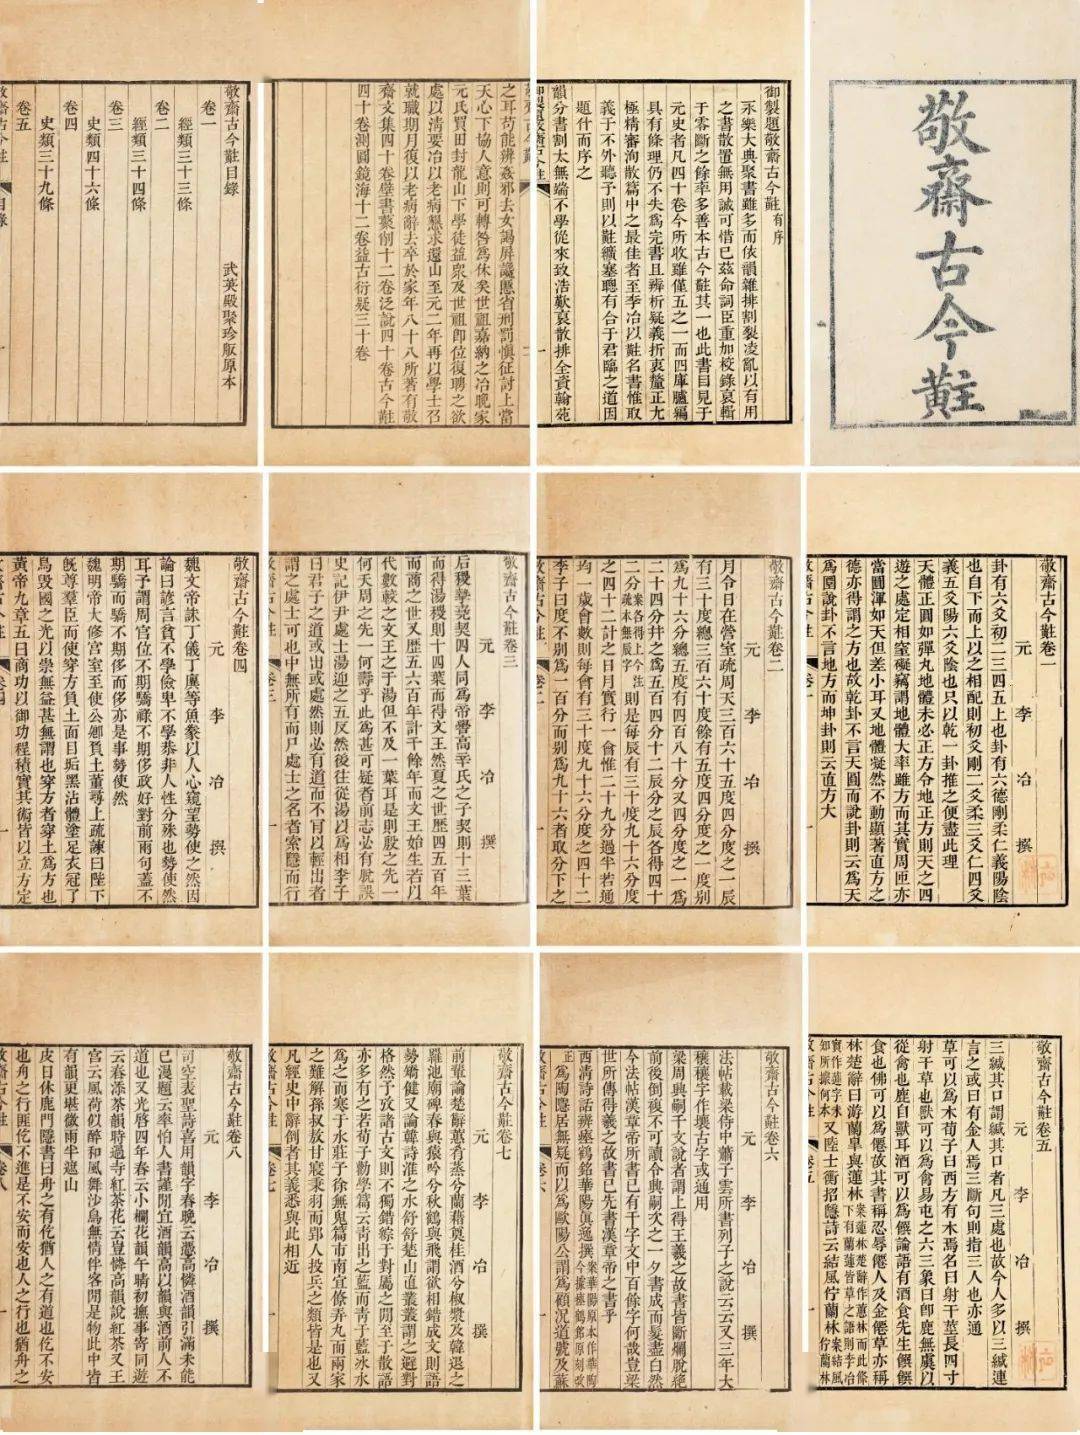 敬齋古今黈
御製題敬齋古今黈有序
永樂大典聚書雖多而依韻雜排割裂凌亂以有用
之書散置無用誠可惜已茲命詞臣重加校錄裒輯
于零斷之餘幸多善本古今黈其一也此書目見于
元史者凡四十卷今所收雖僅五之一而四庫臚編
具有條理仍不失為完書且辨析疑義折衷釐正尢
極精審洵散篇中之最佳者至李冶以黈名書惟取
義于不外聽予則以黈纊塞聰有合于君臨之道因
題什而序之
韻分書割太無端不學從來致浩歎裒散排全資翰苑
之耳苟能辨姦邪去女謁屏讒慝省刑罰慎征討上當
天心下協人意則可轉咎為休矣世祖嘉納之冶晚家
元氏買田封龍山下學徒益眾及世祖即位復聘之欲
處以清要冶以老病懇求還山至元二年再以學士召
就職期月復以老病辭去卒於家年八十八所著有敬
齋文集四十卷壁書藂削十二卷泛說四十卷古今黈
四十卷測圓鏡海十二卷益古衍疑三十卷
敬齋古今黈目錄
武英殿聚珍版原本
卷一
經類三十三條
卷二
經類三十四條
卷三
史類四十六條
卷四
史類三十九條
卷五
敬齋古今黈卷一
元 李 冶 撰
卦有六爻初二三四五上也卦有六德剛柔仁義陽陰
也自下而上以之相配則初爻剛二爻柔三爻仁四爻
義五爻陽六爻陰也只以乾一卦推之便盡此理
天體正圓如彈丸地體未必正方令地正方則天之四
遊之處定相窒礙竊謂地體大率雖方而其實周匝亦
當圓渾如天但差小耳又地體凝然不動顯著直方之
德亦得謂之方也故乾卦不言天圓而說卦則云為天
為圜說卦不言地方而坤卦則云直方大
敬齋古今黈卷二
元 李 冶 撰
月令日在營室疏周天三百六十五度四分度之一辰
有三十度總三百六十度餘有五度四分度之一度別
為九十六分總五度有四百八十分又四分度之一為
二十四分并之為五百四分十二辰分之辰各得四十
二分案各得四十上今注疏本無辰字則是每辰有三十度九十六分度
之四十二計之日月實行一會惟二十九分過半若通
均一歲會數則每會有三十度九十六分度之四十二
李子曰度不別為一百分而別為九十六者取分下之
敬齋古今黈卷三
元 李 冶 撰
后稷摯堯契四人同為帝嚳高辛氏之子契則十三葉
而得湯稷則十四葉而得文王然夏之世歷四五百年
而商之世又歷五六百年計千餘年而文王始生若以
代數較之文王之于湯但不及一葉耳是則殷之先一
何夭周之先一何壽乎此為甚可疑者前志必有脫誤
史記伊尹處士湯迎之五反然後往從湯以為相李子
曰君子之道或出或處然則必有道而不肎以輕出者
謂之處士可也中無所有而尸處士之名者索隱而行
敬齋古今黈卷四
元 李 冶 撰
魏文帝誅丁儀丁廙等魚豢以人心窺望勢使之然因
論曰諺言貧不學儉卑不學恭非人性分殊也勢使然
耳予謂周官位不期驕祿不期侈政好對前兩句蓋不
期驕而驕不期侈而侈亦是事勢使然
魏明帝大修宮室至使公卿負土董尋上疏諫曰陛下
既尊羣臣而使穿方負土面目垢黑沾體塗足衣冠了
鳥毀國之光以崇無益甚無謂也穿方者穿土為方也
黃帝九章五曰商功以御功程積實其術皆以立方定
敬齋古今黈卷五
元 李 冶 撰
三緘其口謂緘其口者凡三處也故今人多以三緘連
言之或曰有金人焉三斷句則指三人也亦通
草可以為木荀子曰西方有木焉名曰射干莖長四寸
射干草也獸可以為禽易屯之六三象曰即鹿無虞以
從禽也鹿自獸耳酒可以為饌論語有酒食先生饌
食也佛可以為僊故其書稱忍辱僊人及金僊草亦稱
林楚辭曰游蘭皐與蕙林案蓮林楚辭作蕙林而此條下有蘭蓮皆草之語則李冶
實作蓮字未知所據何本又陸士衡招隱詩云結風佇蘭林案結風佇蘭林
敬齋古今黈卷六
元 李 冶 撰
法帖載梁侍中蕭子雲所書列子之說云云又三年大
穰穰字作壤古字或通用
梁周興嗣千文說者謂上得王羲之故書皆斷爛脫絶
前後倒複不可讀令興嗣次之一夕書成而髮盡白然
今法帖漢章帝所書已有千字文中百餘字何哉豈梁
世所傳得羲之故書已先書漢章帝之書乎
西清詩話辨瘞鶴銘華陽眞逸撰案華陽原本作華陶今據瘞鶴銘原刻改
正為陶隱居無疑而以為歐陽公謂為顧況道號及蘇
敬齋古今黈卷七
元 李 冶 撰
前輩論楚辭蕙肴蒸兮蘭藉奠桂酒兮椒漿及韓退之
羅池廟碑春與猿吟兮秋鶴與飛謂欲相錯成文則語
勢矯健又論韓詩淮之水舒舒楚山直叢叢謂之避對
格然予攷諸古文則不獨錯綜于對屬之間至于散語
亦多有之若荀子勸學篇云青出之藍而青于藍冰水
為之而寒于水莊子徐無鬼篇市南宜僚弄丸而兩家
之難解孫叔敖甘寢秉羽而郢人投兵之類皆是也又
凡經史中辭倒者其義悉與此相近
敬齋古今黈卷八
元 李 冶 撰
司空表聖詩喜用韻字春晚云憑高憐酒韻引滿未能
已漫題云率怕人書謹閒宜酒韻高以韻與酒前人不
道也又光啓四年春云小欄花韻午晴初撫事寄同遊
云春添茶韻時過寺紅茶花云豈憐高韻說紅茶又王
官云風荷似醉和風舞沙鳥無情伴客閒是物此中皆
有韻更堪微雨半遮山
皮日休鹿門隱書曰舟之有㐌猶人之有道也㐌不安
也舟之行匪㐌不進是不安而安也人之行也猶舟之